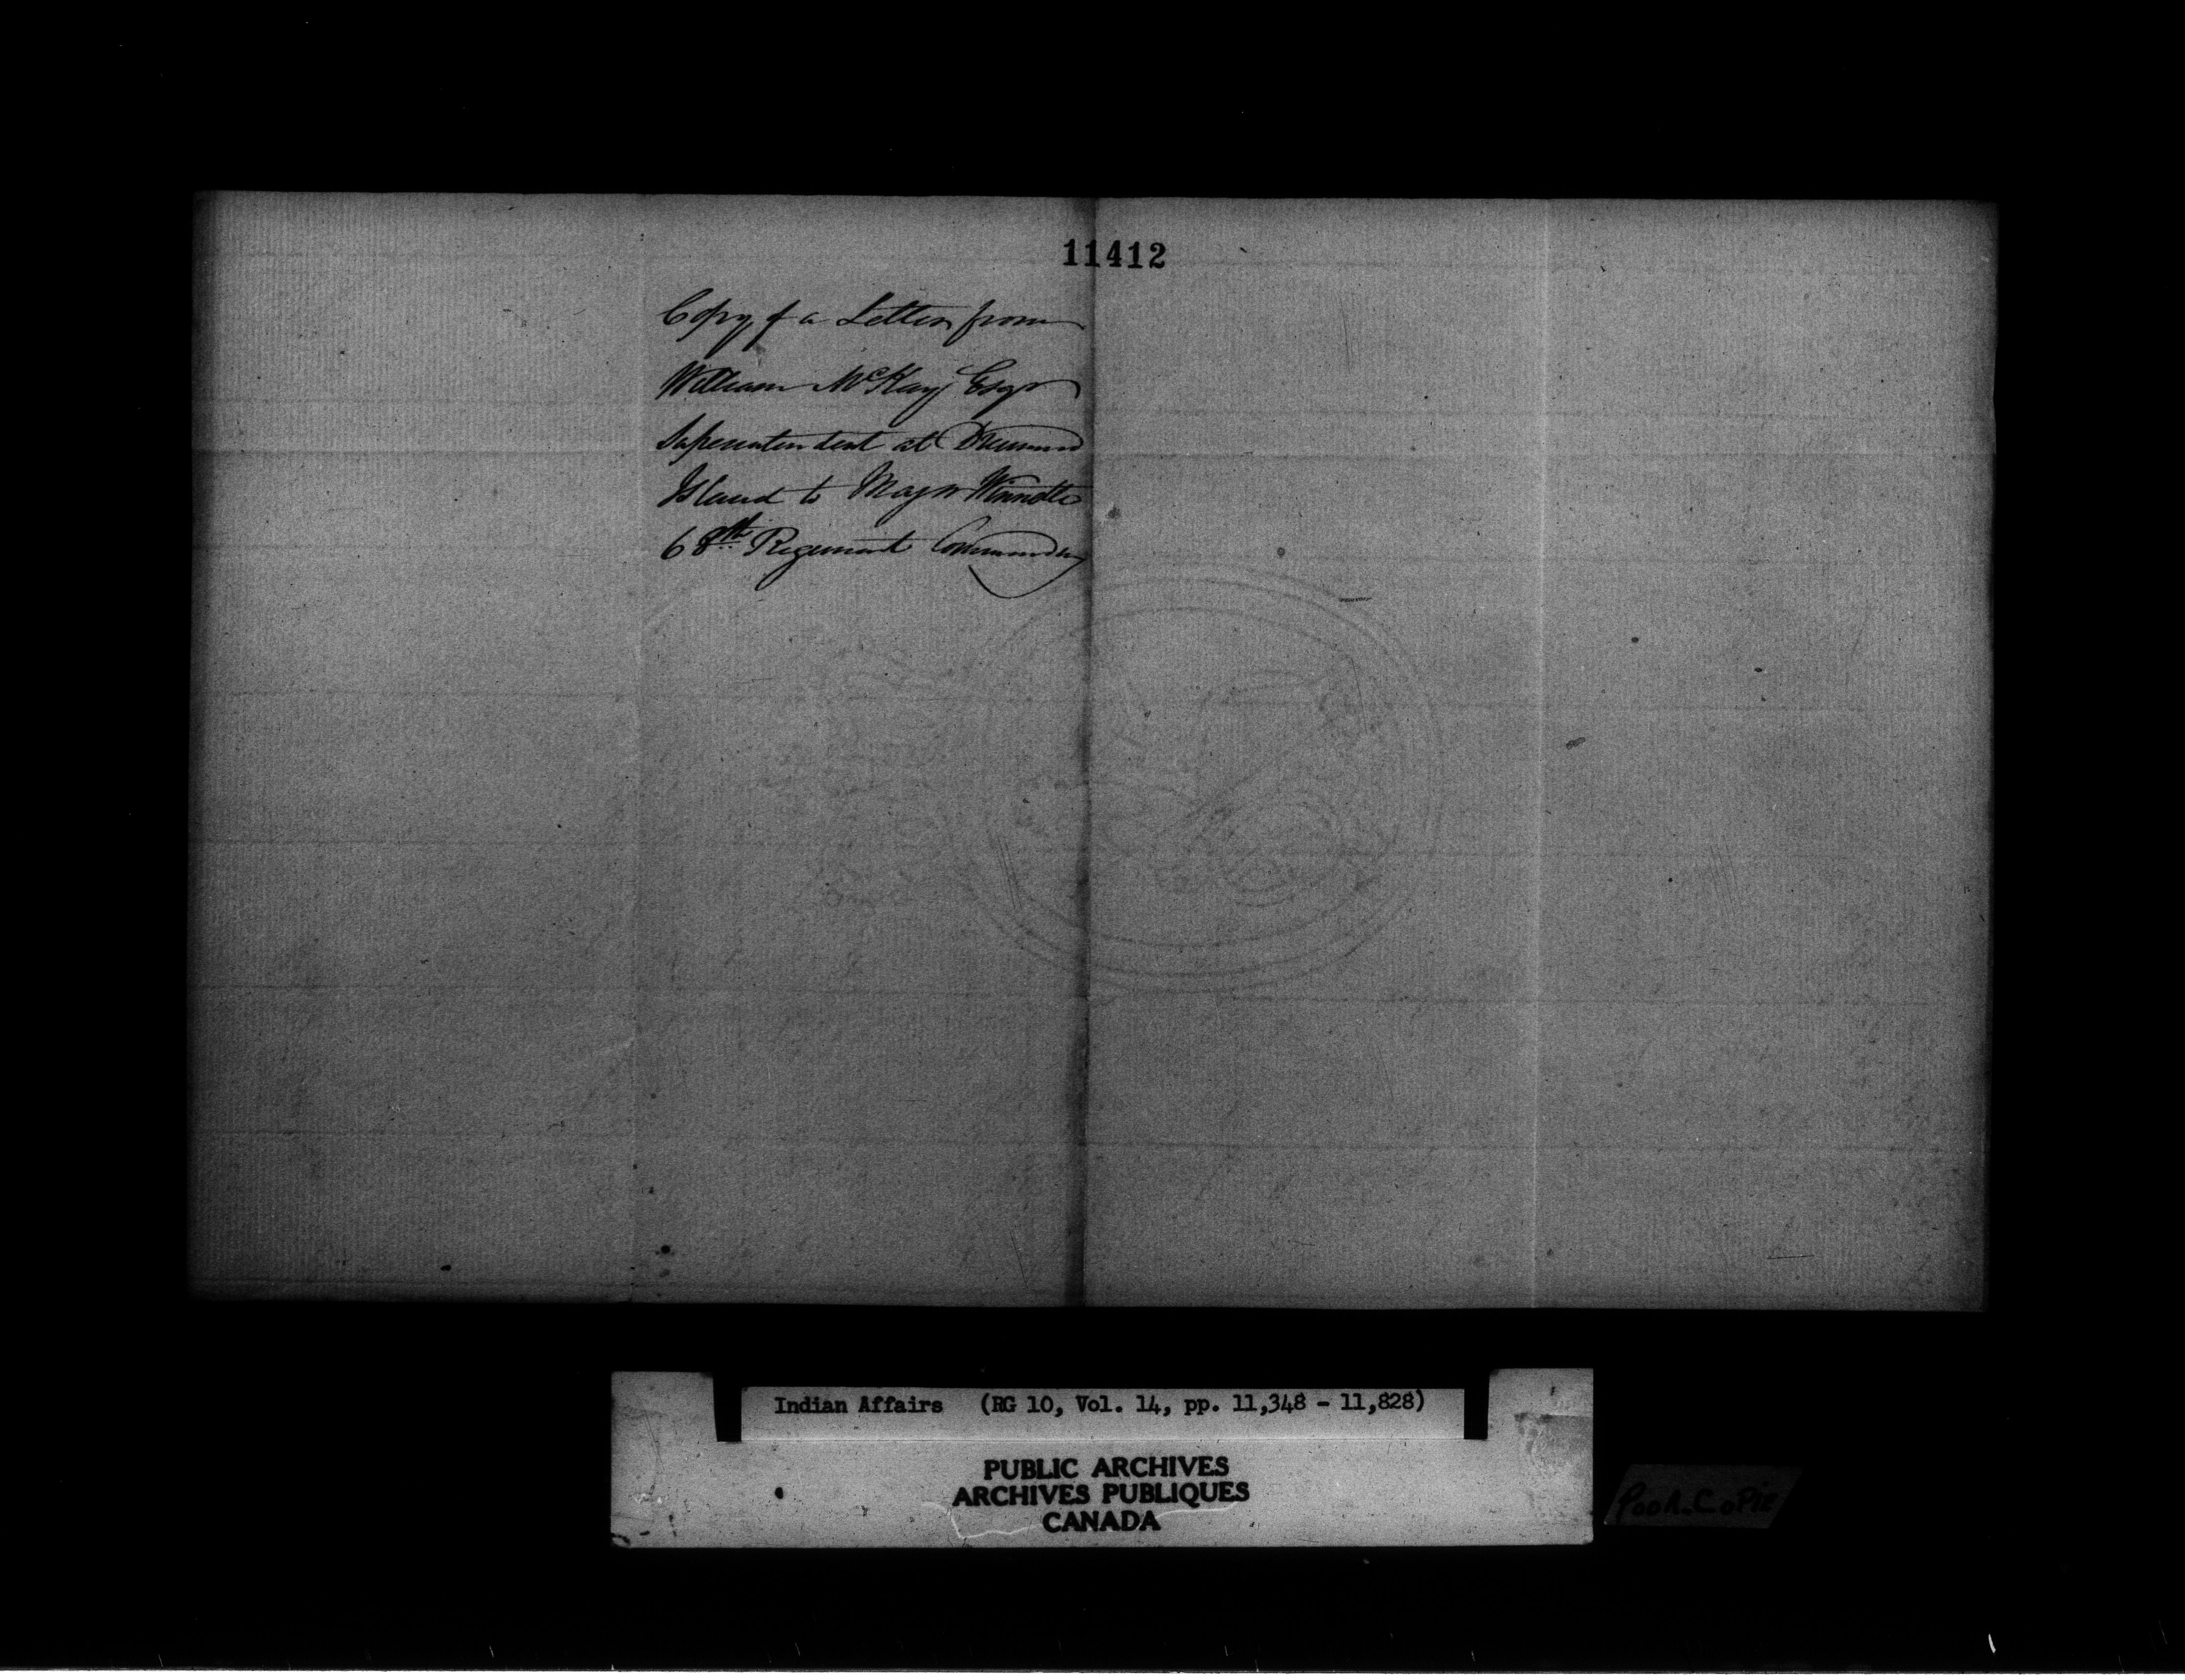 11412
Copy of a Letter from
William McKay Esqr
Superintendent at Drummd
Island to Major Winnett
68th Regiment Commanding
Indian Affairs (RG 10, Vol. 14, pp. 11,348 - 11,828)
PUBLIC ARCHIVES
ARCHIVES PUBLIQUES
CANADA
POOR COPIE